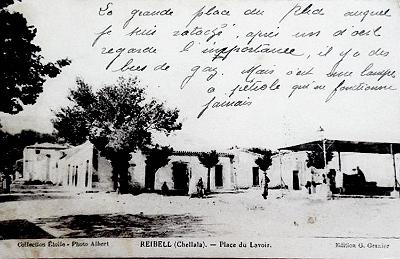 La grande place du bled auquel
je suis rataché, après un d'oeil
regarde l'importance, il y a des
becs de gaz. Mais c'est une lampe
à pétrole qui ne fonctionne
jamais
Collection Étoile - Photo Albert
REIBELL (Chellala). — Place du Lavoir.
Edition G. Granier